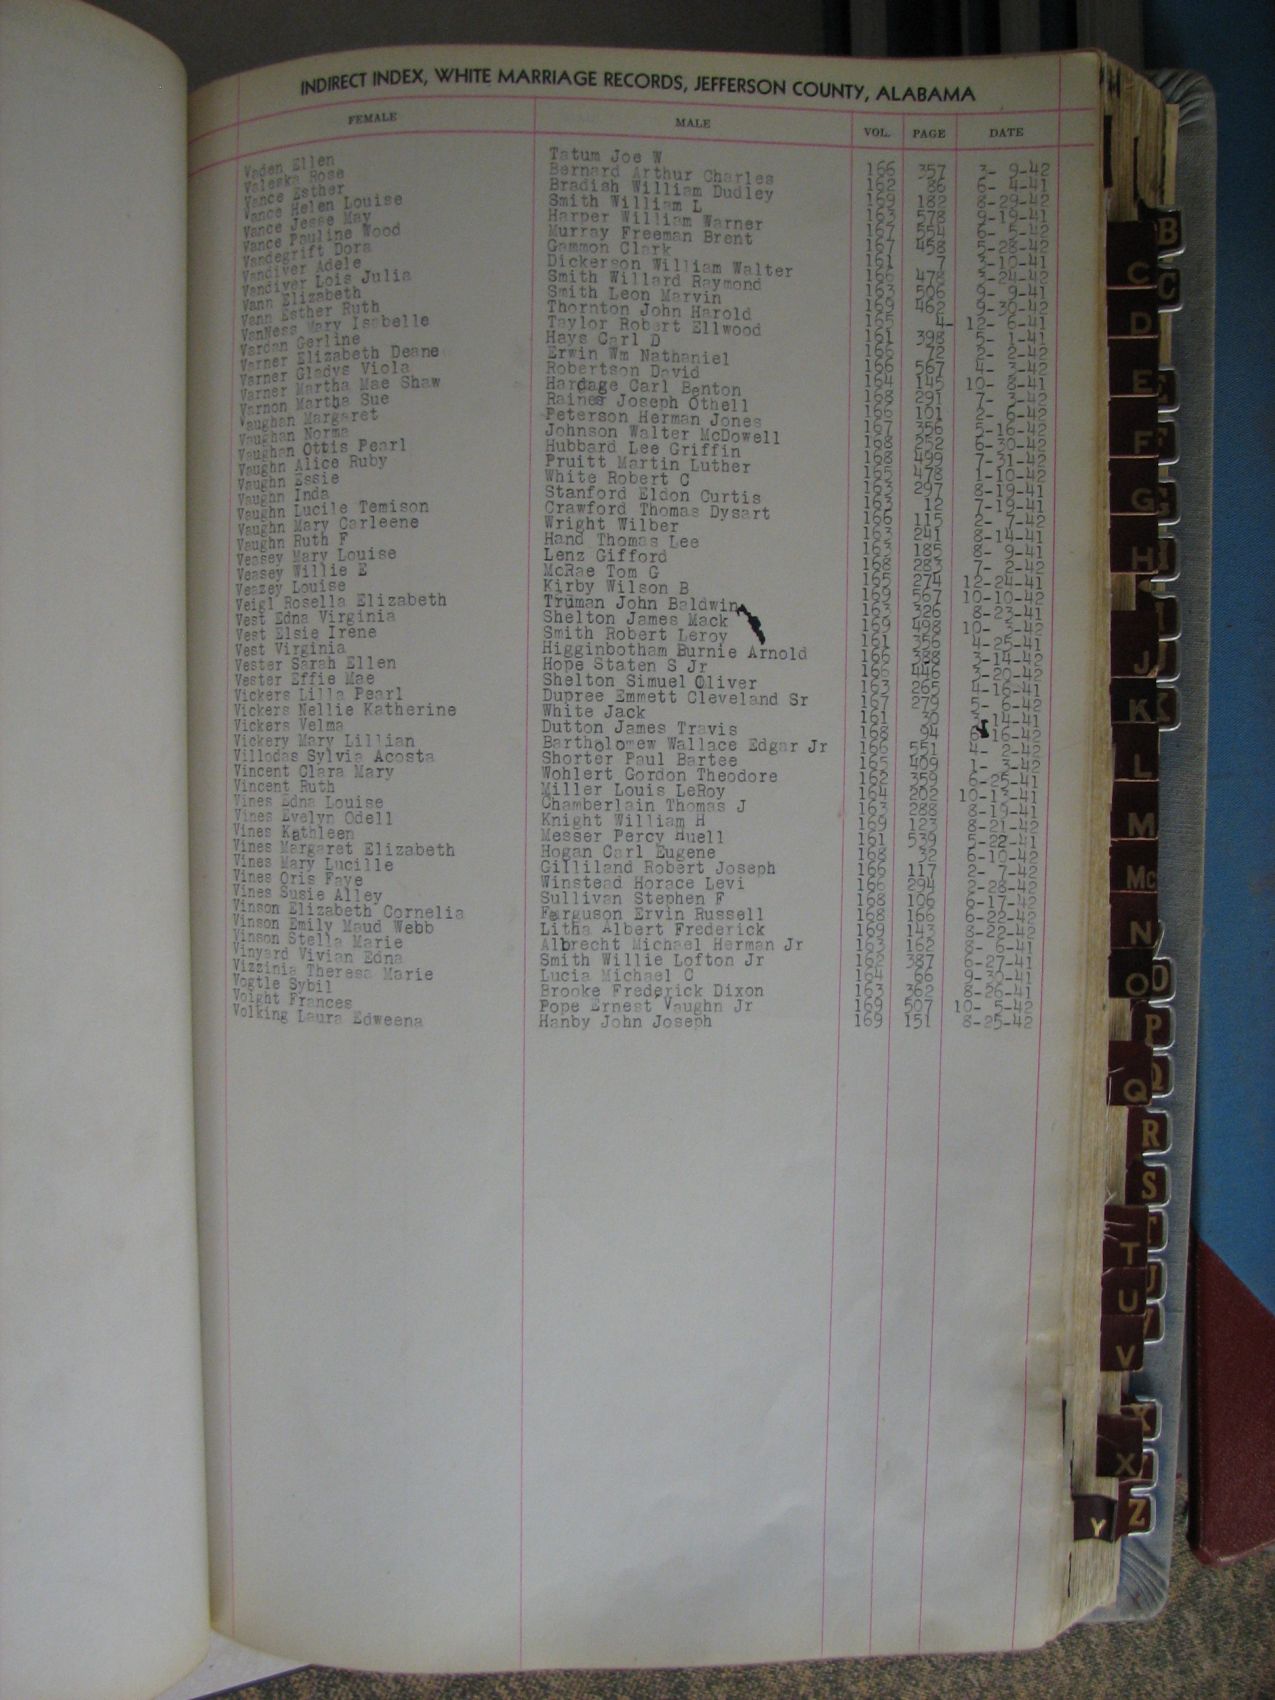 INDIRECT INDEX, WHITE MARRIAGE RECORDS, JEFFERSON COUNTY, ALABAMA
FEMALE MALE VOL. PAGE DATE
Vaden Ellen Tatum Joe W 166 357 3- 9-42
Valeska Rose Bernard Arthur Charles 162 86 6- 4-41
Vance Esther Bradish William Dudley 169 182 8-29-42
Vance Helen Louise Smith William L 163 578 9-19-41
Vance Jesse May Harper William Warner 167 554 6- 5-42
Vance Pauline Wood Murray Freeman Brent 167 458 5-28-42
Vandegrift Dora Gammon Clark 161 7 3-10-41
Vandiver Adele Dickerson William Walter 166 478 3-24-42
Vandiver Lois Julia Smith Willard Raymond 163 506 9- 9-41
Vann Elizabeth Smith Leon Marvin 169 462 9-30-42
Vann Esther Ruth Thornton John Harold 165 4 12- 6-41
VanNess Mary Isabelle Taylor Robert Ellwood 161 398 5- 1-41
Vardan Gerline Hays Carl D 166 72 2- 2-42
Varner Elizabeth Deane Erwin Wm Nathaniel 166 567 4- 3-42
Varner Gladys Viola Robertson David 164 145 10- 8-41
Varner Martha Mae Shaw Hardage Carl Benton 168 291 7- 3-42
Varnon Martha Sue Raines Joseph Othell 166 101 2- 6-42
Vaughan Margaret Peterson Herman Jones 167 356 5-16-42
Vaughan Norma Johnson Walter McDowell 168 252 6-30-42
Vaughan Ottis Pearl Hubbard Lee Griffin 168 499 7-31-42
Vaughn Alice Ruby Pruitt Martin Luther 165 478 1-10-42
Vaughn Essie White Robert C 163 297 8-19-41
Vaughn Inda Stanford Eldon Curtis 163 12 7-19-41
Vaughn Lucile Temison Crawford Thomas Dysart 166 115 2- 7-42
Vaughn Mary Carleene Wright Wilber 163 241 8-14-41
Vaughn Ruth F Hand Thomas Lee 163 185 8- 9-41
Veasey Mary Louise Lenz Gifford 168 283 7- 2-42
Veasey Willie E McRae Tom G 165 274 12-24-41
Veazey Louise Kirby Wilson B 169 567 10-10-42
Veigl Rosella Elizabeth Truman John Baldwin 163 326 8-23-41
Vest Edna Virginia Shelton James Mack 169 498 10- 3-42
Vest Elsie Irene Smith Robert Leroy 161 356 4-25-41
Vest Virginia Higginbotham Burnie Arnold 166 388 3-14-42
Vester Sarah Ellen Hope Staten S Jr 166 446 3-20-42
Vester Effie Mae Shelton Simuel Oliver 163 265 4-16-41
Vickers Lilla Pearl Dupree Emmett Cleveland Sr 167 279 5- 6-42
Vickers Nellie Katherine White Jack 161 30 3-14-41
Vickers Velma Dutton James Travis 168 94 6-16-42
Vickery Mary Lillian Bartholomew Wallace Edgar Jr 166 551 4- 2-42
Villodas Sylvia Acosta Shorter Paul Bartee 165 409 1- 3-42
Vincent Clara Mary Wohlert Gordon Theodore 162 359 6-25-41
Vincent Ruth Miller Louis LeRoy 164 202 10-13-41
Vines Edna Louise Chamberlain Thomas J 163 288 8-19-41
Vines Evelyn Odell Knight William H 169 123 8-21-42
Vines Kathleen Messer Percy Huell 161 539 5-22-41
Vines Margaret Elizabeth Hogan Carl Eugene 168 32 6-10-42
Vines Mary Lucille Gilliland Robert Joseph 166 117 2- 7-42
Vines Oris Faye Winstead Horace Levi 166 294 2-28-42
Vines Susie Alley Sullivan Stephen F 168 106 6-17-42
Vinson Elizabeth Cornelia Ferguson Ervin Russell 168 166 6-22-42
Vinson Emily Maud Webb Litha Albert Frederick 169 143 8-22-42
Vinson Stella Marie Albrecht Michael Herman Jr 163 162 8- 6-41
Vinyard Vivian Edna Smith Willie Lofton Jr 162 387 6-27-41
Vizzinia Theresa Marie Lucia Michael C 164 66 9-30-41
Vogtle Sybil Brooke Frederick Dixon 163 362 8-26-41
Voight Frances Pope Ernest Vaughn Jr 169 507 10- 5-42
Volking Laura Edweena Hanby John Joseph 169 151 8-25-42
B
C C
D
E E
F F
G G
H H
I
J J
K K
L
M
Mc
N
O O
P
Q Q
R
S
T T
U U
V V
X X
Y Z